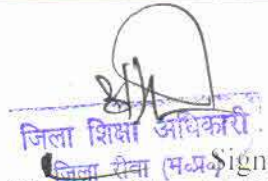 जिला शिक्षा अधिकारी
जिला रीवा (म.प्र.) Sign